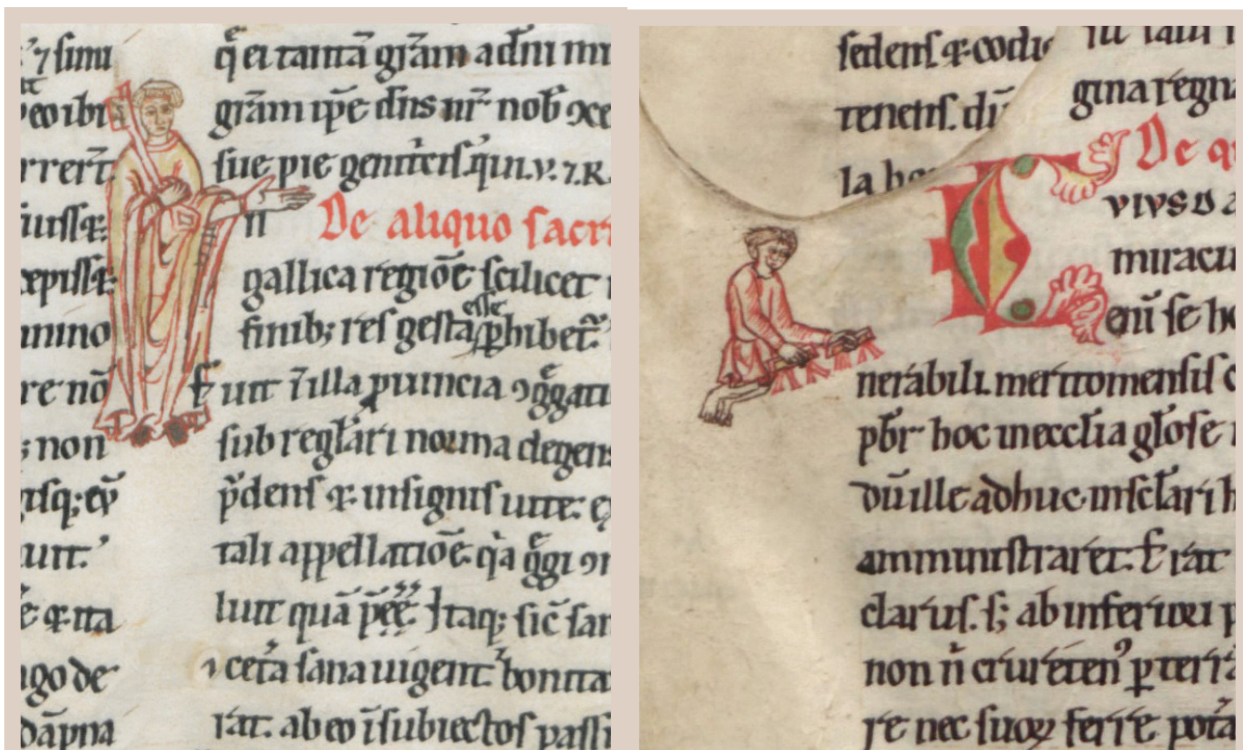 ⁊ simu
eo ibi
rrert̄
iussꝗ:
episꝗ:
mino
re nō
; non
isq; eꝰ
uit.
ē ꝗ ita
go de
dāpna
q̄ ei tantā grām a dn̄i mi
grām ip̄e dn̄s nr̄ nob̄ ↄce
sue pie genitͥcis. qui. v. ⁊. R.
n De aliquo sacri
gallica regiōe scilicet
finib; res gesta esse ꝑhibet̄.
Fuit ī illa ꝓuincia ↄg̃gati
sub reglāri norma degens
p̄dens ꝗ insignis uite.
tali appellatiōe. q̃a g̃gi ↄ
luit quā p̄ēē. Itaq; sic̄ san
⁊ cet̃a sana uigent. bonita
rat. ab eo ī subiectos passi
sedens ꝗ codic
tenens. di
la ho
gina regna
De q
vivs d
miracu
enī se ho
nerabili. meritomensis c
pbr̄ hoc in ecclīa glose
Dū ille adhuc in sclāri h
amministraret. Erat
clarus. s; ab inferiori p
non n̄ crur̄ etenꝰ p terrā
re nec suoꝝ ferre pota